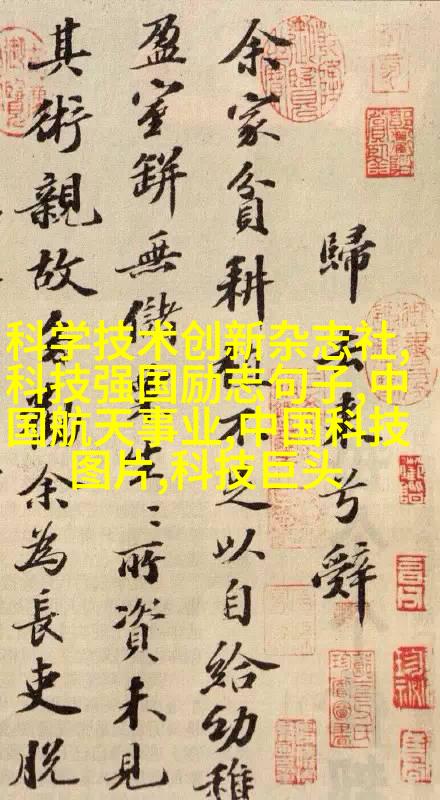 歸去來兮辭
余家貧耕植不足以自給幼稚
盈室缾無儲粟生〻所資未見
其術親故多勸余為長吏脫
科学技术创新杂志社,
科技强国励志句子,中
国航天事业,中国科技
图片,科技巨头